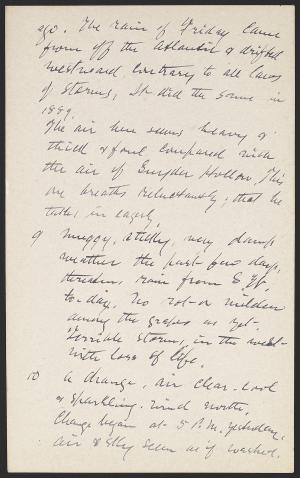 ago. The rain of Friday came
from off the Atlantic & drifted
westward, contrary to all laws
of storms, It did the same in
1889.
The air here seems heavy &
thick & foul compared with
the air of Snyder Hollow, This
one breaths reluctantly; that he
takes in eagerly,
9 Muggy, sticky, very damp
weather the past few days,
thickens, rain from S.W.
to-day. No rot or mildew
among the grapes as yet.
Terrible storms, in the west
with loss of life,
10 A change, air clear, cool
& sparkling. wind north,
Change began at 5 P.M. yesterday,
air & sky seem as if washed.